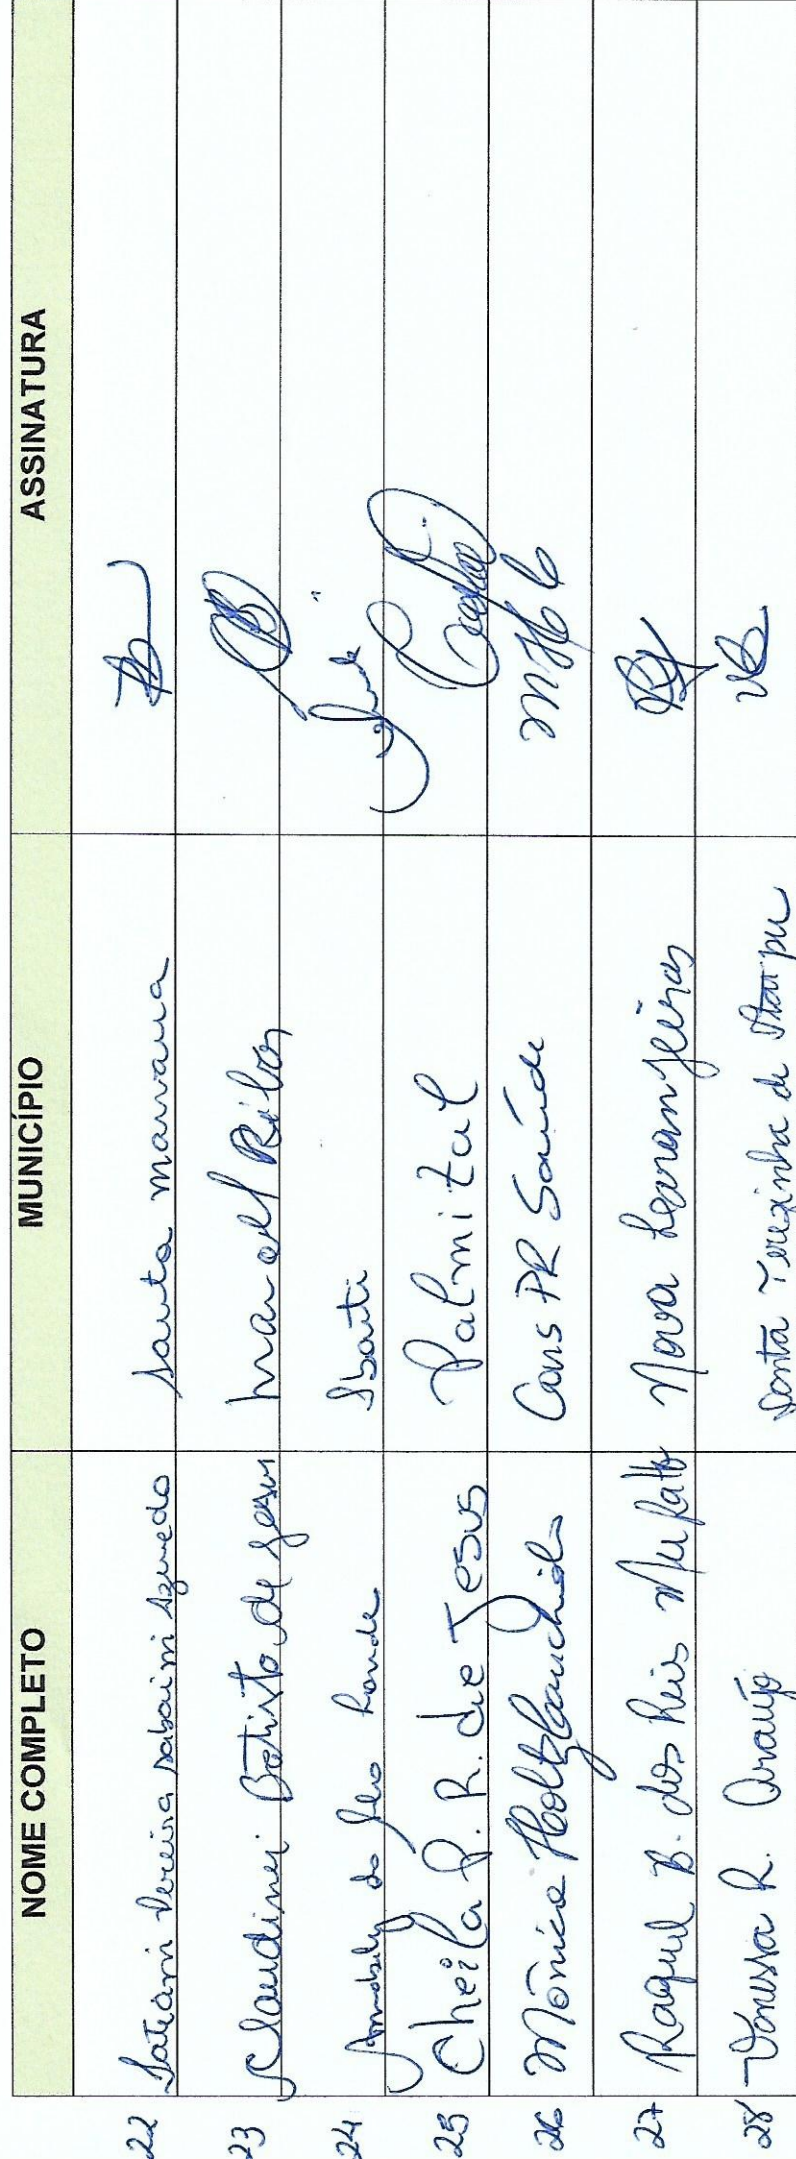 NOME COMPLETO MUNICÍPIO ASSINATURA
22 Pereira Azevedo Santa mariana
23 Claudinei Batista de Jesus manoel Ribas
24 Ibaiti
25 Cheila R. R. de Jesus Palmital
26 Mônica Holtz Cons PR Saúde MHC
27 Raquel B. dos Reis Mufatto Nova Laranjeiras
28 Vanessa R. Araújo Santa Terezinha de Itaipu